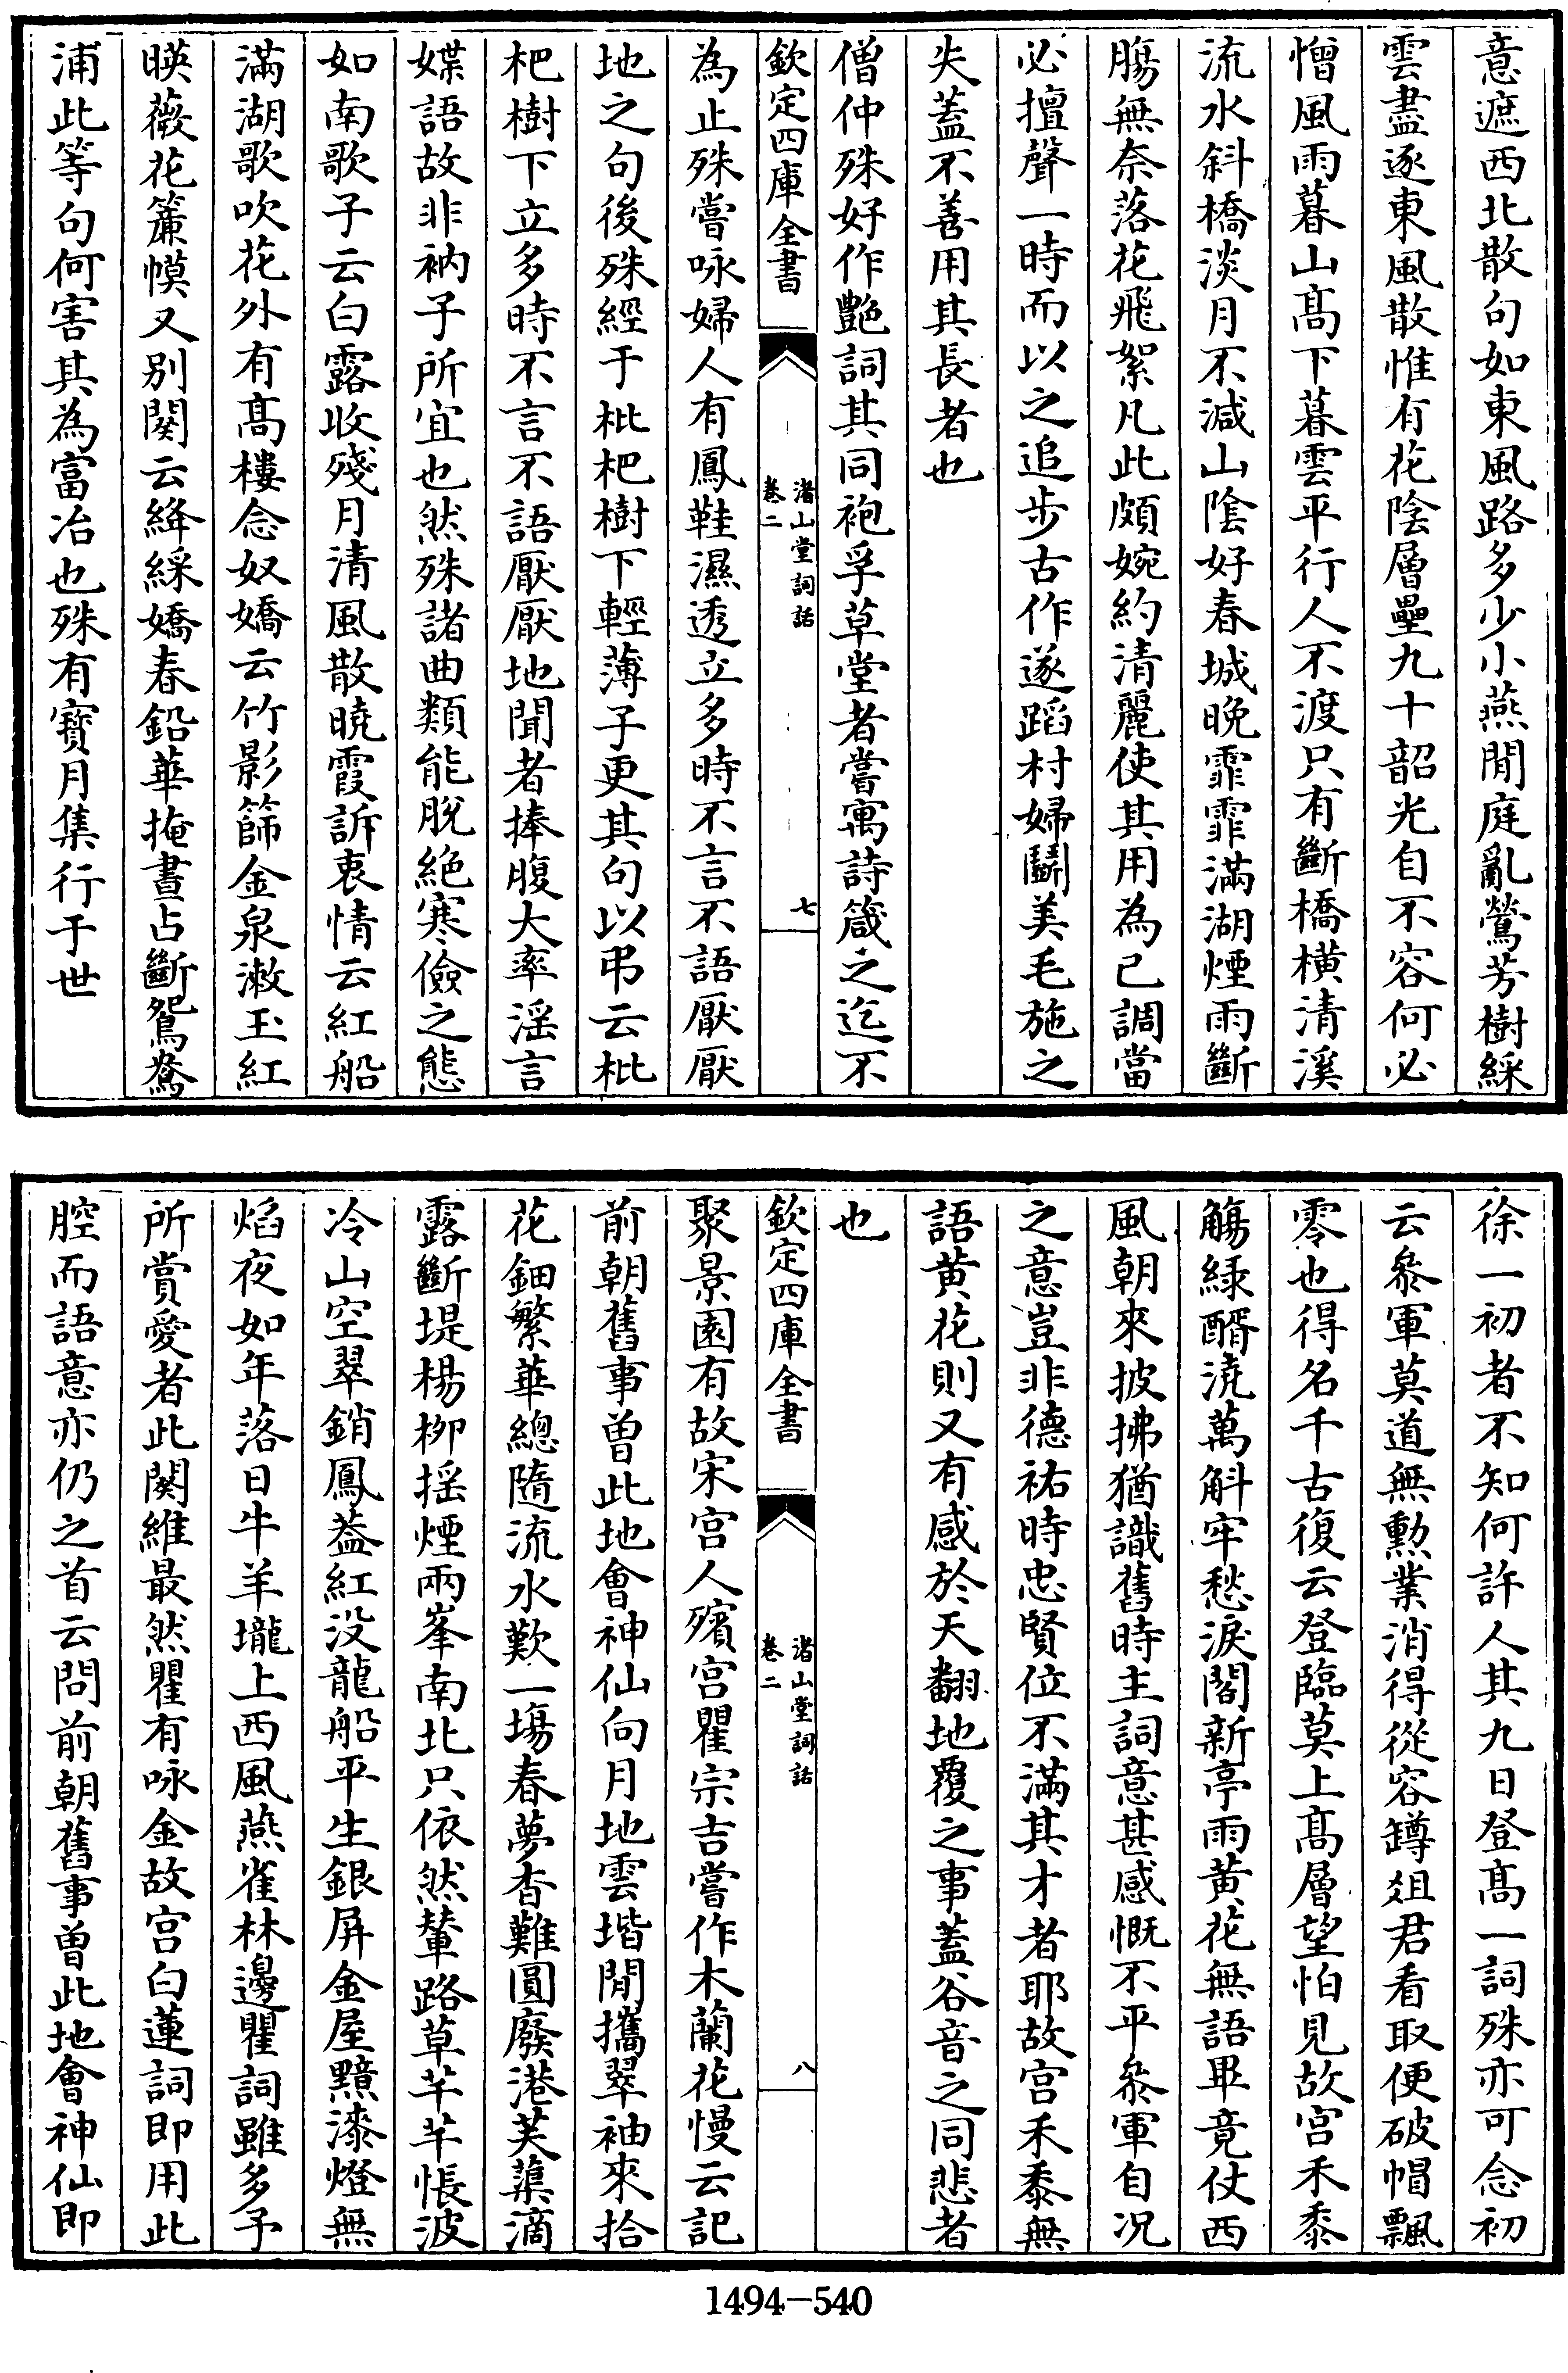 意遮西北散句如東風路多少小燕閒庭亂鶯芳樹綵
雲盡逐東風散惟有花陰層疊九十韶光自不容何必
憎風雨暮山髙下暮雲平行人不渡只有斷橋横清溪
流水斜橋淡月不減山陰好春城晚霏霏滿湖煙雨斷
腸無奈落花飛絮凡此頗婉約清麗使其用為已調當
必擅聲一時而以之追步古作遂蹈村婦鬭美毛施之
失蓋不善用其長者也
僧仲殊好作艶詞其同袍孚草堂者嘗寓詩箴之迄不
欽定四庫全書
渚山堂詞話
卷二
七
為止殊嘗咏婦人有鳳鞋濕透立多時不言不語厭厭
地之句後殊經于枇杷樹下輕薄子更其句以弔云枇
杷樹下立多時不言不語厭厭地聞者捧腹大率滛言
媟語故非衲子所宜也然殊諸曲類能脱絶寒儉之態
如南歌子云白露收殘月清風散曉霞訴衷情云紅船
滿湖歌吹花外有髙樓念奴嬌云竹影篩金泉漱玉紅
暎薇花簾幙又别闋云絳綵嬌春鉛華掩晝占斷鴛鴦
浦此等句何害其為富冶也殊有寳月集行于世
徐一初者不知何許人其九日登髙一詞殊亦可念初
云叅軍莫道無勲業消得從容罇俎君看取便破帽飄
零也得名千古復云登臨莫上髙層望怕見故宫禾黍
觴緑醑澆萬斛牢愁淚閣新亭雨黄花無語畢竟仗西
風朝來披拂猶識舊時主詞意甚感慨不平叅軍自况
之意豈非德祐時忠賢位不滿其才者耶故宫禾黍無
語黄花則又有感於天翻地覆之事蓋谷音之同悲者
也
欽定四庫全書
渚山堂詞話
卷二
八
聚景園有故宋宫人殯宫瞿宗吉嘗作木蘭花慢云記
前朝舊事曾此地會神仙向月地雲堦閒攜翠袖來拾
花鈿繁華總隨流水歎一塲春夢杳難圓廢港芙蕖滴
露斷堤楊柳揺煙兩峯南北只依然輦路草芊芊悵波
冷山空翠銷鳳蓋紅没龍船平生銀屏金屋黯漆燈無
焰夜如年落日牛羊壠上西風燕雀林邊瞿詞雖多予
所賞愛者此闋維最然瞿有咏金故宫白蓮詞即用此
腔而語意亦仍之首云問前朝舊事曾此地會神仙即
1494-540